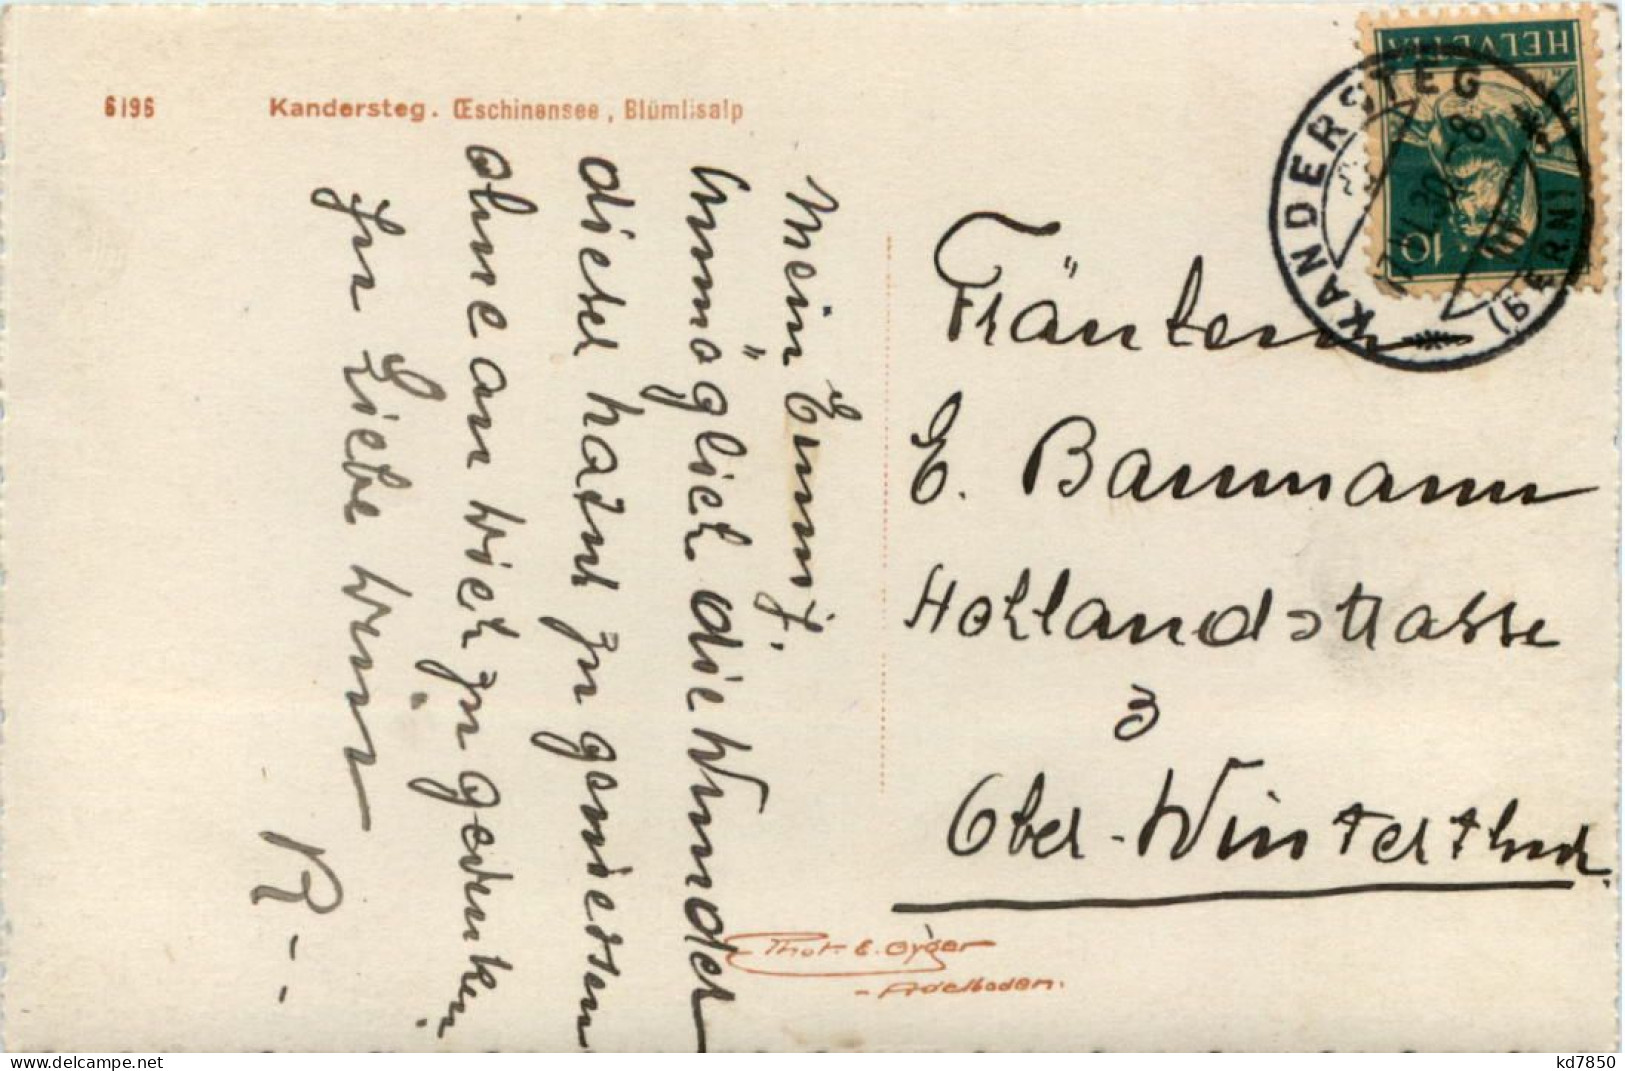 6196 Kandersteg. Œschinensee, Blümlisalp
HELVETIA
10
KANDERSTEG
(BERN)
Mein Emmj.
Unmöglich die Wunder
dieser Natur zu geniessen
ohne an Dich zu gedenken.
In Liebe Dein
R - -
Fräulein
E. Baumann
Hollandstrasse
3
Ober-Winterthur.
Phot. E. Gyger
- Adelboden.
kd7850